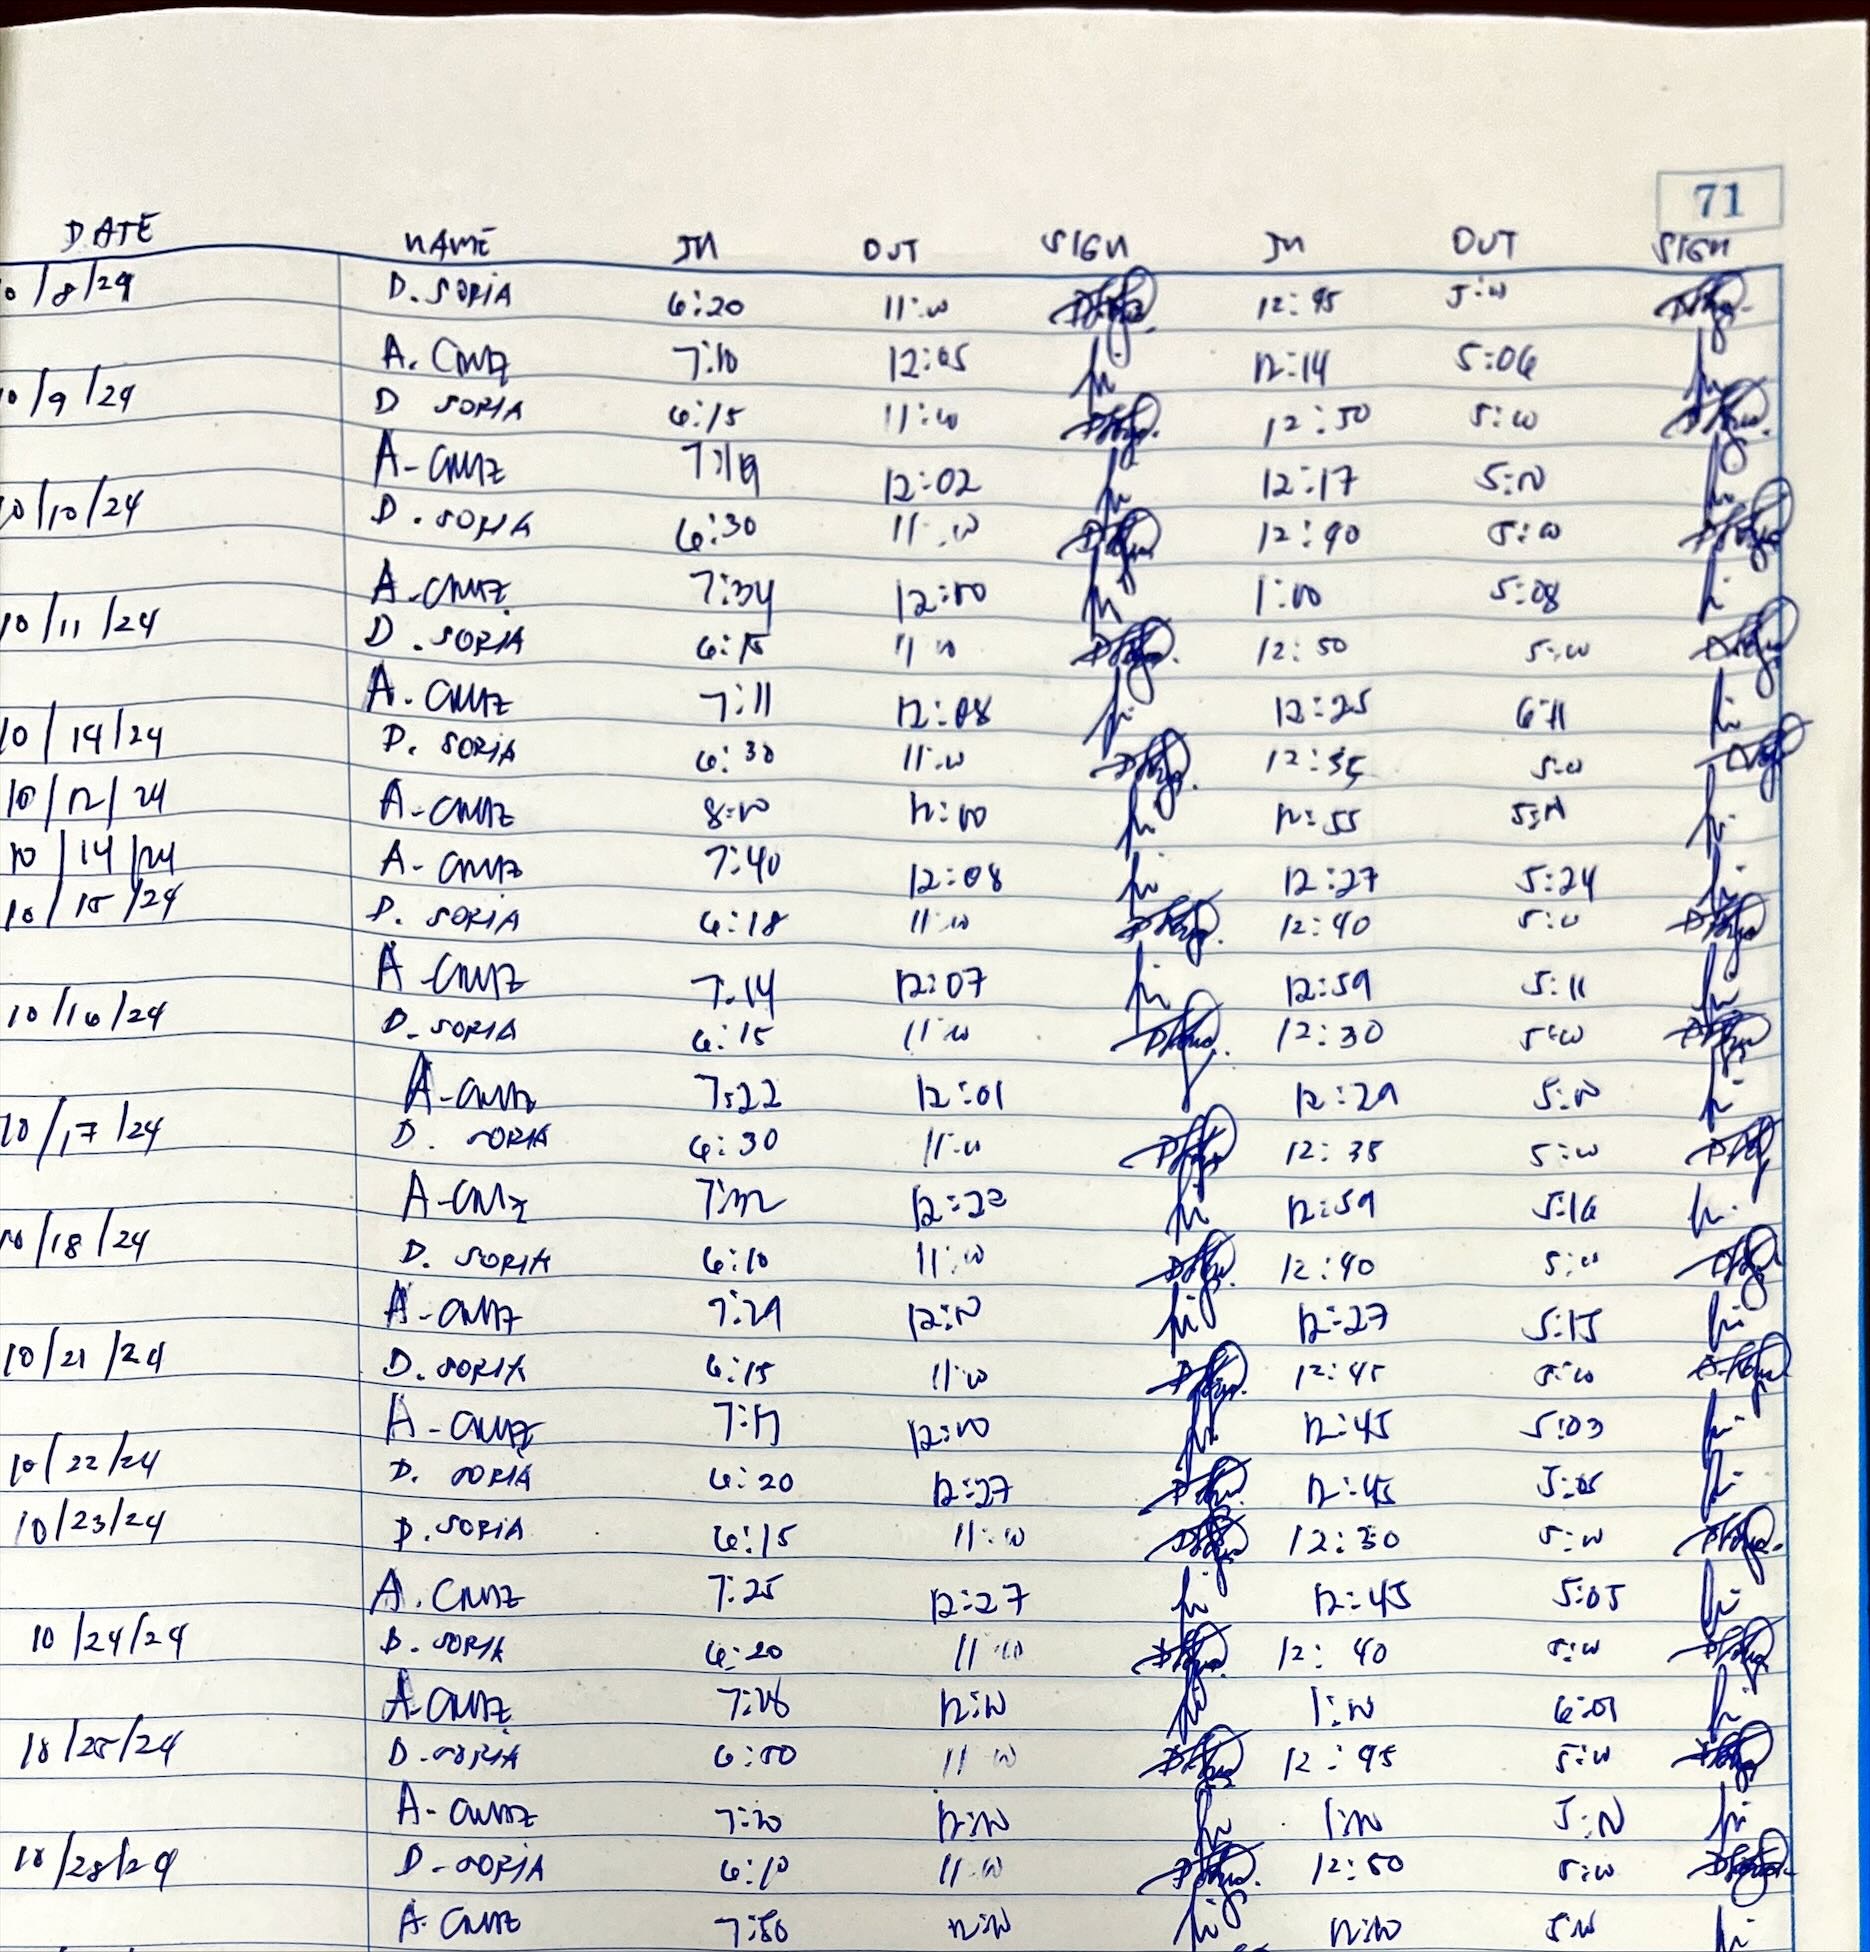 71
DATE NAME IN OUT SIGN IN OUT SIGN
0/8/24 D. SORIA 6:20 11:00 12:45 5:00
A. CRUZ 7:10 12:05 12:14 5:06
10/9/24 D SORIA 6:15 11:00 12:50 5:00
A-CRUZ 12:02 12:17
10/10/24 D. SORIA 6:30 11:00 12:40 5:00
A-CRUZ 7:34 12:00 1:00 5:08
10/11/24 D. SORIA 6:15 11 00 12:50 5:00
A. CRUZ 7:11 12:08 12:25 6:11
10/14/24 D. SORIA 6:30 11:00 12:35 5:00
10/12/24 A-CRUZ 8:00 12:00 12:55
10/14/24 A-CRUZ 7:40 12:08 12:27 5:24
10/15/24 D. SORIA 6:18 11:00 12:40 5:00
A-CRUZ 7:14 12:07 12:59 5:11
10/16/24 D. SORIA 6:15 11:00 12:30 5:00
A-CRUZ 7:22 12:01 12:29 5:00
10/17/24 D. SORIA 6:30 11:00 12:35 5:00
A-CRUZ 7:32 12:59 5:16
10/18/24 D. SORIA 6:10 11:00 12:40 5:00
A-CRUZ 7:29 12:27 5:15
10/21/24 D. SORIA 6:15 11:00 12:45 5:00
A-CRUZ 12:00 12:45 5:03
10/22/24 D. SORIA 6:20 12:27 12:45 5:05
10/23/24 D. SORIA 6:15 11:00 12:30 5:00
A. CRUZ 7:25 12:27 12:45 5:05
10/24/24 D. SORIA 6:20 11:00 12:40 5:00
A-CRUZ 12:00 1:00 6:01
10/25/24 D. SORIA 6:50 11 00 12:45 5:00
A-CRUZ 12:00 1:00
10/28/24 D-SORIA 6:10 11:00 12:50 5:00
A. CRUZ 7:50 12:00 12:00 5:00